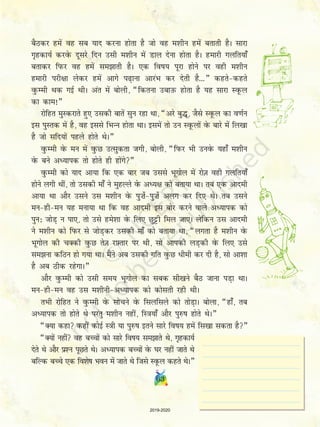 बैठकर हमें वह सब याद करना होता है जो वह मशीन हमें बताती है। सारा
गृहकार्य करके दूसरे दिन उसी मशीन में डाल देना होता है। हमारी गलतियाँ
बताकर फिर वह हमें समझाती है। एक विषय पूरा होने पर वही मशीन
हमारी परीक्षा लेकर हमें आगे पढ़ाना आरंभ कर देती है...” कहते-कहते
कुम्मी थक गई थी। अंत में बोली, “कितना उबाऊ होता है यह सारा स्कूल
का काम।”
रोहित मुस्कराते हुए उसकी बातें सुन रहा था, “अरे बुद्धू, जैसे स्कूल का वर्णन
इस पुस्तक में है, वह इससे भिन्न होता था। इसमें तो उन स्कूलों के बारे में लिखा
है जो सदियों पहले होते थे।”
कुम्मी के मन में कुछ उत्सुकता जगी, बोली, “फिर भी उनके यहाँ मशीन
के बने अध्यापक तो होते ही होंगे?”
कुम्मी को याद आया कि एक बार जब उससे भूगोल में रोज़ वही गलतियाँ
होने लगी थीं, तो उसकी माँ ने मुहल्ले के अध्यक्ष को बताया था। तब एक आदमी
आया था और उसने उस मशीन के पुर्जे-पुर्जे अलग कर दिए थे। तब उसने
मन-ही-मन यह मनाया था कि वह आदमी इस बोर करने वाले अध्यापक को
पुनः जोड़ न पाए, तो उसे हमेशा के लिए छुट्टी मिल जाए। लेकिन उस आदमी
ने मशीन को फिर से जोड़कर उसकी माँ को बताया था, “लगता है मशीन के
भूगोल की चक्की कुछ तेज़ रफ़्तार पर थी, सो आपकी लड़की के लिए उसे
समझना कठिन हो गया था। मैंने अब उसकी गति कुछ धीमी कर दी है, सो आशा
है अब ठीक रहेगा।”
और कुम्मी को उसी समय भूगोल का सबक सीखने बैठ जाना पड़ा था।
मन-ही-मन वह उस मशीनी-अध्यापक को कोसती रही थी।
तभी रोहित ने कुम्मी के सोचने के सिलसिले को तोड़ा। बोला, “हाँ, तब
अध्यापक तो होते थे परंतु मशीन नहीं, स्त्रियाँ और पुरुष होते थे।”
“क्या कहा? कहीं कोई स्त्री या पुरुष इतने सारे विषय हमें सिखा सकता है?”
“क्यों नहीं? वह बच्चों को सारे विषय समझाते थे, गृहकार्य
देते थे और प्रश्न पूछते थे। अध्यापक बच्चों के घर नहीं जाते थे
बल्कि बच्चे एक विशेष भवन में जाते थे जिसे स्कूल कहते थे।”
2019-2020